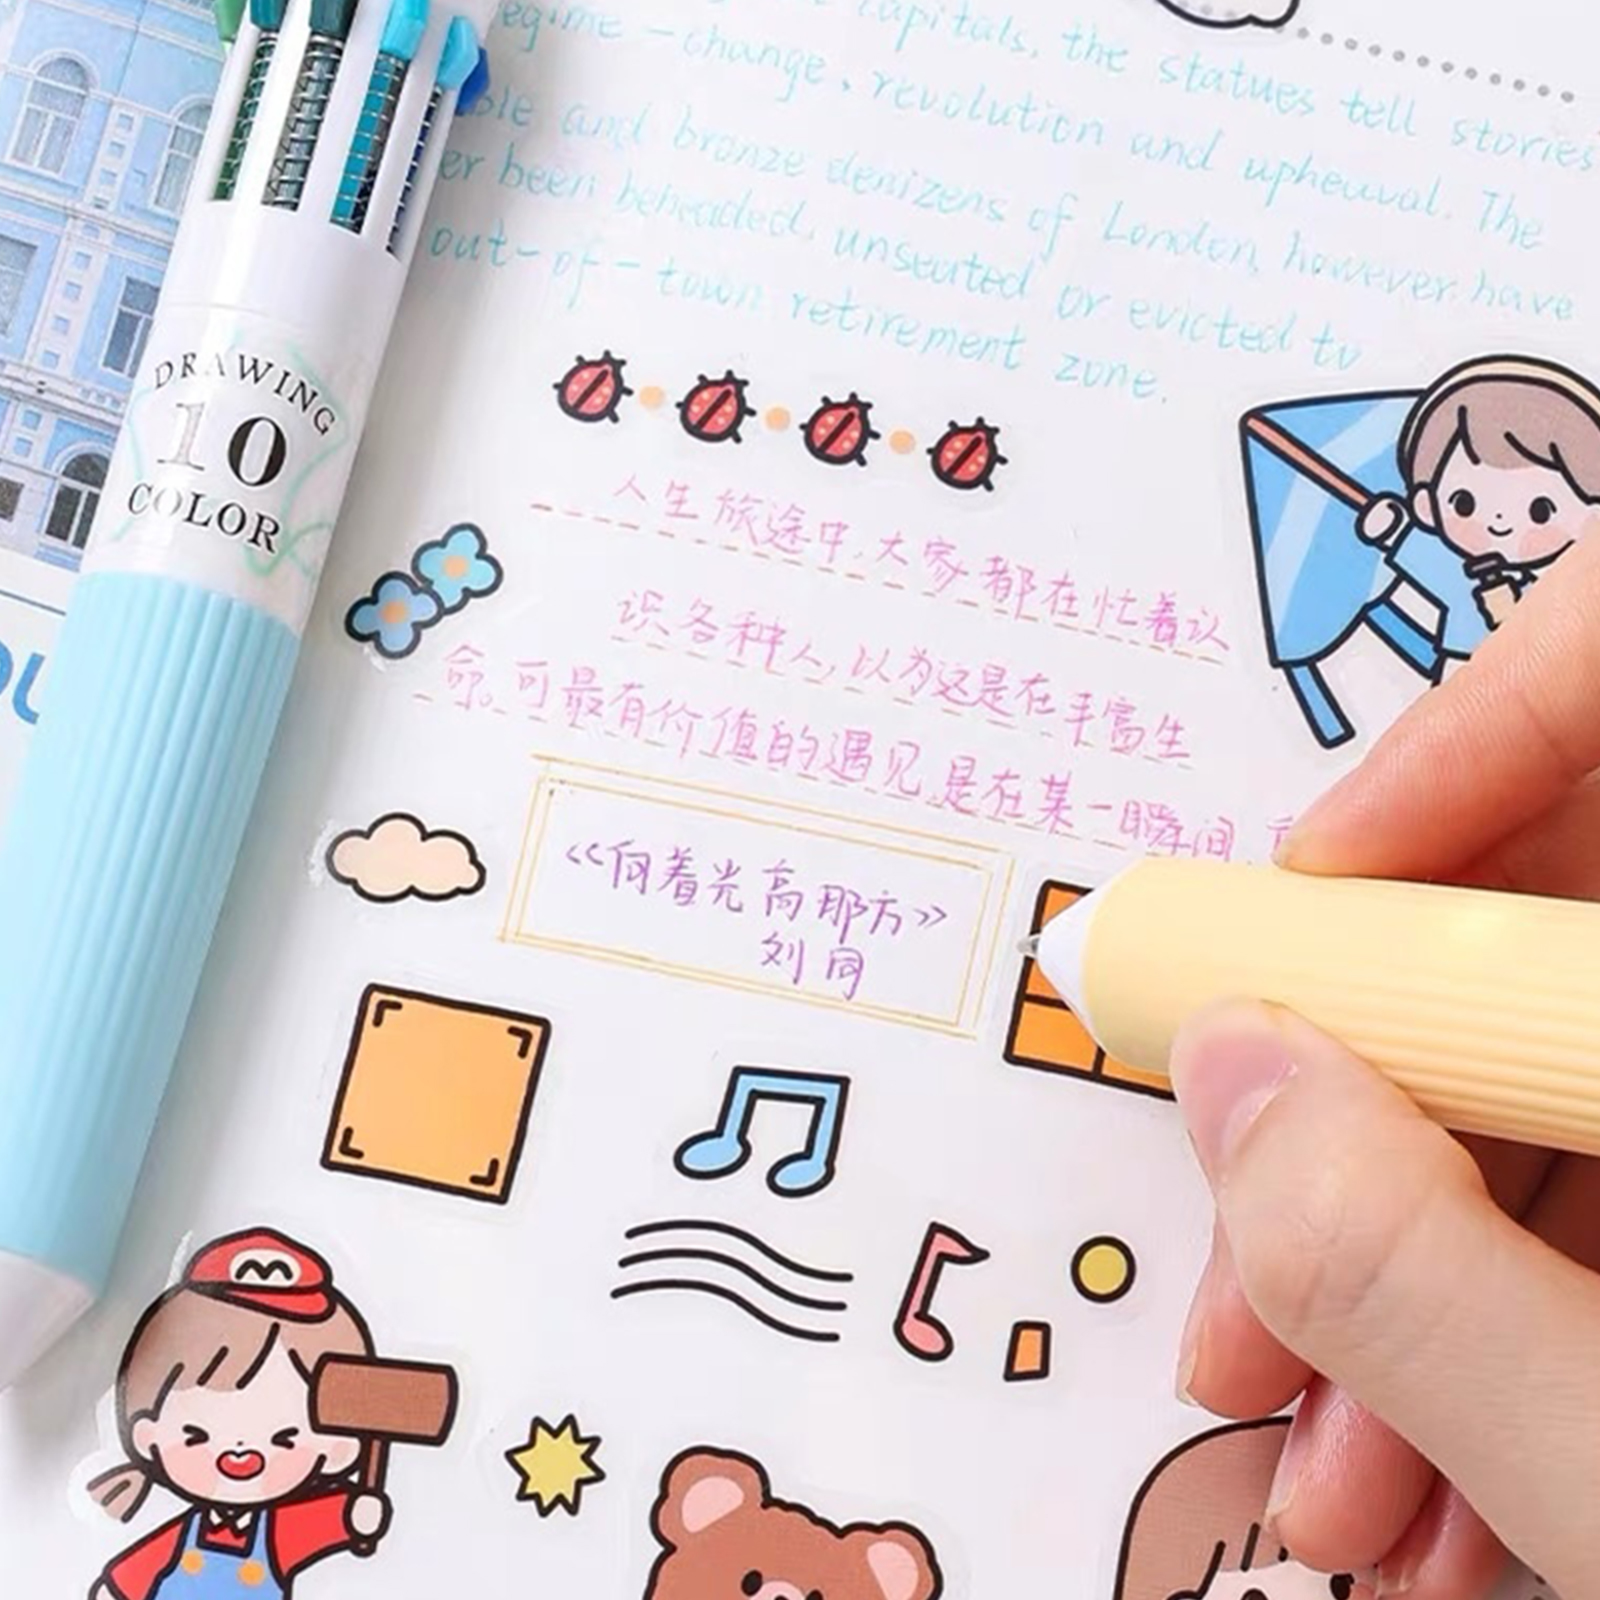 capitals, the statues tell stories
egime - change, revolution and upheaval. The
ble and bronze denizens of London, however have
er been beheaded, unseated or evicted to
out-of-town retirement zone.
DRAWING
10
COLOR
人生旅途中,大家都在忙着认
识各种人,以为这是在丰富生
命。可最有价值的遇见,是在某一瞬间,
<<向着光亮那方>>
刘同
M